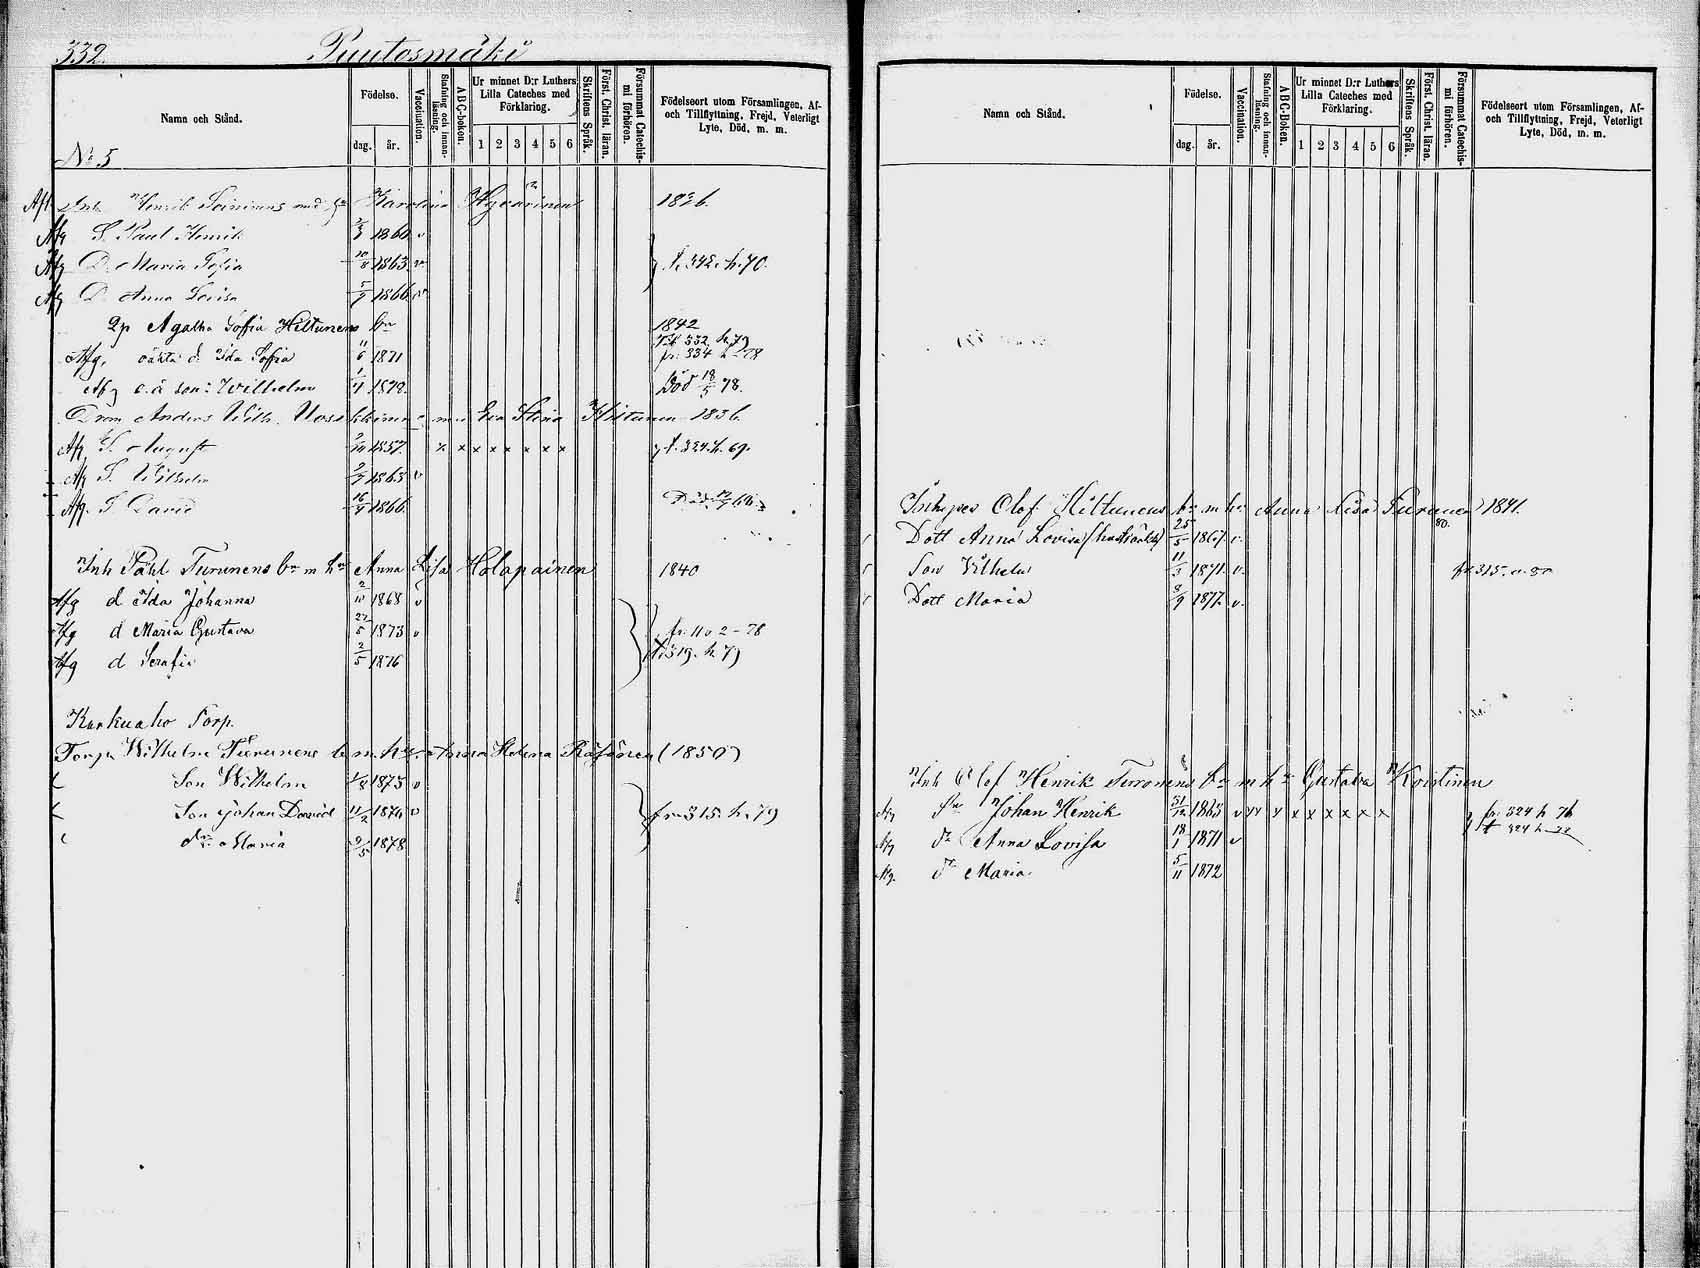 332. Puutosmäki
Namn och Stånd.
Födelse.
dag. år.
Vaccination.
Stafning och innanläsning.
A B C-boken.
Ur minnet D:r Luthers Lilla Cateches med Förklaring.
1 2 3 4 5 6
Skriftens Språk.
Först. Christ. läran.
Försummat Catechismi förhören.
Födelseort utom Församlingen, Af- och Tillflyttning, Frejd, Veterligt Lyte, Död, m. m.
No 5
Inh. Henrik Karolina Hyvärinen 1836.
Afg S. Paul Henrik 1860 v
Afg D. Maria Sofia 10/8 1863 v t. 342. h. 70.
Afg D. Anna Lovisa 5/9 1866 v
Agatha Soffia Hiltunens 1842
332 h. 79
Afg. oäkta d. Ida Soffia 11/6 1871 fr. 334 h - 78
Afg o. ä son: Wilhelm 1/4 1872 Död 18/5 78.
Anders Wilh. Eva Stina Hiltunen 1836.
Afg S. August 1857. x x x x x x x x t. 334. h. 69.
Afg S. Wilhelm 1863 v
Afg. S. David 16/9 1866
Inh Påhl Turunens br m hu Anna Lisa Holapainen 1840
Afg d Ida Johanna 2/10 1868 v
Afg d Maria Gustava 27/5 1873 v fr. 1102 - 78
Afg d Serafia 2/5 1876 t. 319. h. 79
Kurkuaho Torp.
Torp. Wilhelm Turunens b m. hu Anna Helena Räsänen (1850)
Son Wilhelm 1/8 1873 v
Son Johan David 11/2 1876 v fr. 315. h. 79
dr. Maria 9/5 1878
Namn och Stånd.
Födelse.
dag. år.
Vaccination.
Stafning och innanläsning.
A B C-Boken.
Ur minnet D:r Luthers Lilla Cateches med Förklaring.
1 2 3 4 5 6
Skriftens Språk.
Först. Christ. läran.
Försummat Catechismi förhören.
Födelseort utom Församlingen, Af- och Tillflyttning, Frejd, Veterligt Lyte, Död, m. m.
Inhyses Olof Hiltunens br m hu Anna Lisa Turunen 1841.
Dott Anna Lovisa 25/5 1867 v. 80.
Son Vilhelm 11/3 1871 v. fr. 315. v. 80
Dott Maria 8/9 1877 v.
Inh Olof Henrik Turonens br m hu Gustava Koistinen
Afg Sn Johan Henrik 31/12 1863 v x x x x x x x x x fr. 324 h 76
Afg dr Anna Lovisa 18/1 1871 v t 324 h - 77
Afg. dr Maria. 5/11 1872